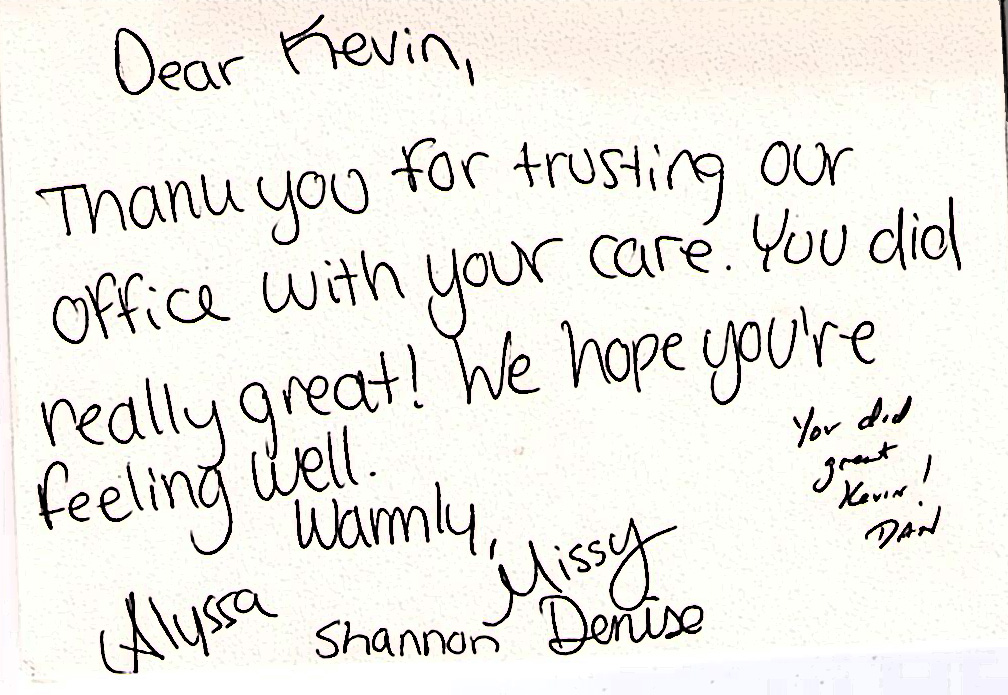 Dear Kevin,
Thank you for trusting our
office with your care. You did
really great! We hope you're
feeling well.
Warmly,
Missy
Alyssa
Shannon Denise
You did
great
Kevin!
DAN